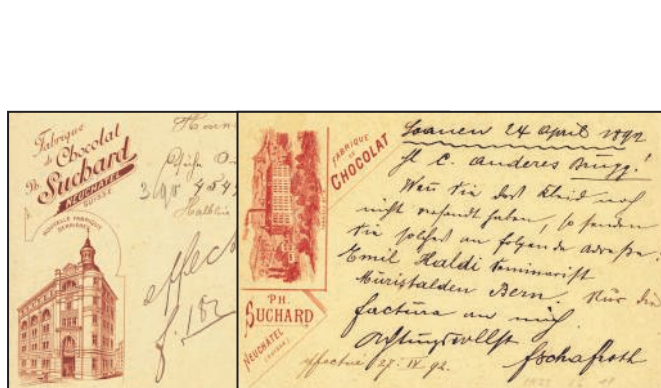 Fabrique
de Chocolat
Ph. Suchard
NEUCHATEL
SUISSE
NOUVELLE FABRIQUE
SERRIÈRES
effect
f. 182
FABRIQUE
DE
CHOCOLAT
PH.
SUCHARD
NEUCHATEL
(SUISSE)
Saanen 24 April 1892
C. Anderes Brugg!
Wen Sie das Kleid noch
nicht versandt haben, so senden
Sie solches an folgende Adresse:
Emil Haldi Seminarist
Muristalden Bern. Nur die
factura an mich
Achtungsvollst
effectué 27. IV. 92.